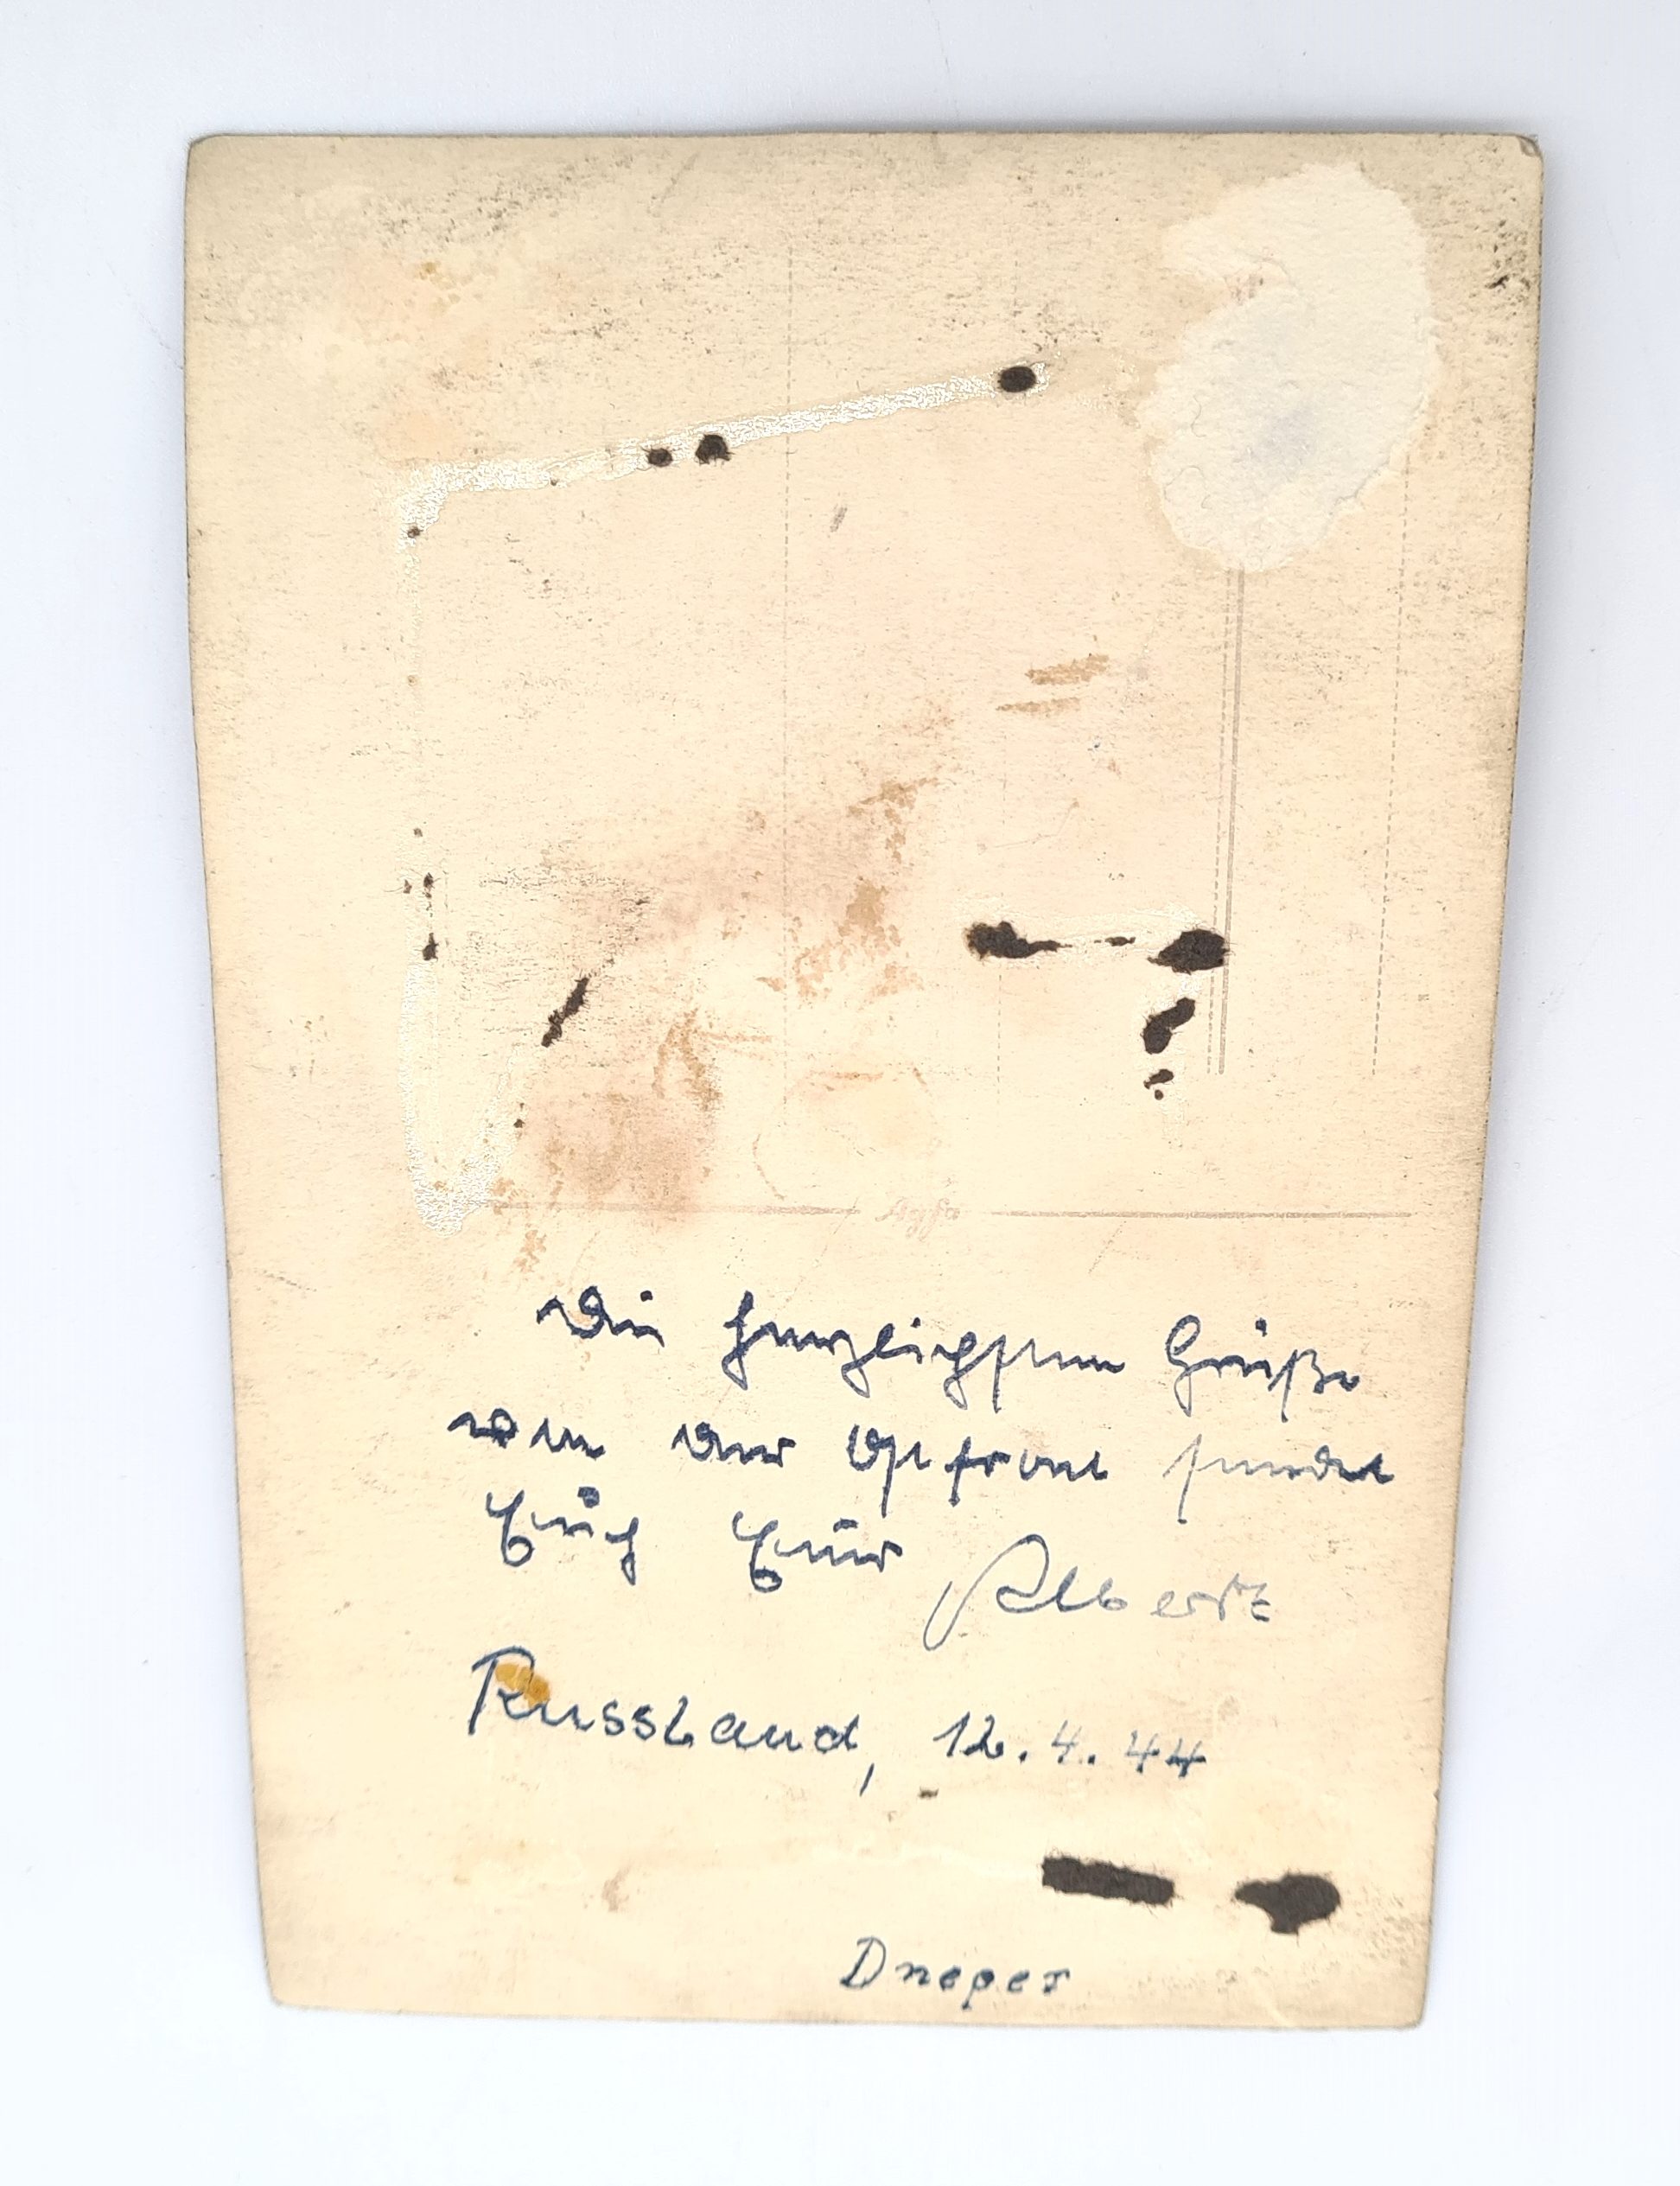 Die herzlichsten Grüße
von der Ostfront sendet
Euch Euer Albert
Russland, 12.4.44
Dneper
Agfa